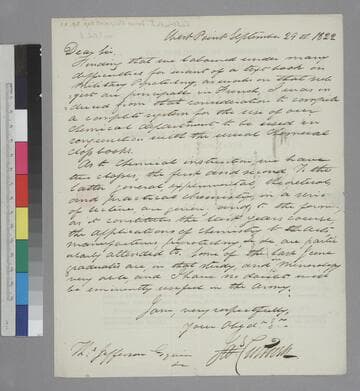 West Point September 29th 1822
Dear Sir.
Finding that we laboured under many
difficulties for want of a text book on
Military Pyrotechny, as works on that sub
ject are principally in French, I was in
duced from that consideration to compile
a complete system for the use of our
Chemical department to be used in
conjunction with the usual Chemical
class books.
As to Chemical instruction, we have
two classes, the first and second; To the
latter general experimental theoretical
and practical chemistry, in a series
of lectures are given, and to the former
as it constitutes the last years course,
the applications of Chemistry to the Arts
manufactures, pyrotechny &c are partic
ularly attended to. Some of the last June
graduates are in that study, and mineralogy
very able and I have no doubt will
be eminently useful in the Army.
I am, very respectfully,
your Obedt
Ths Jefferson Esquire
Jas Cutbush